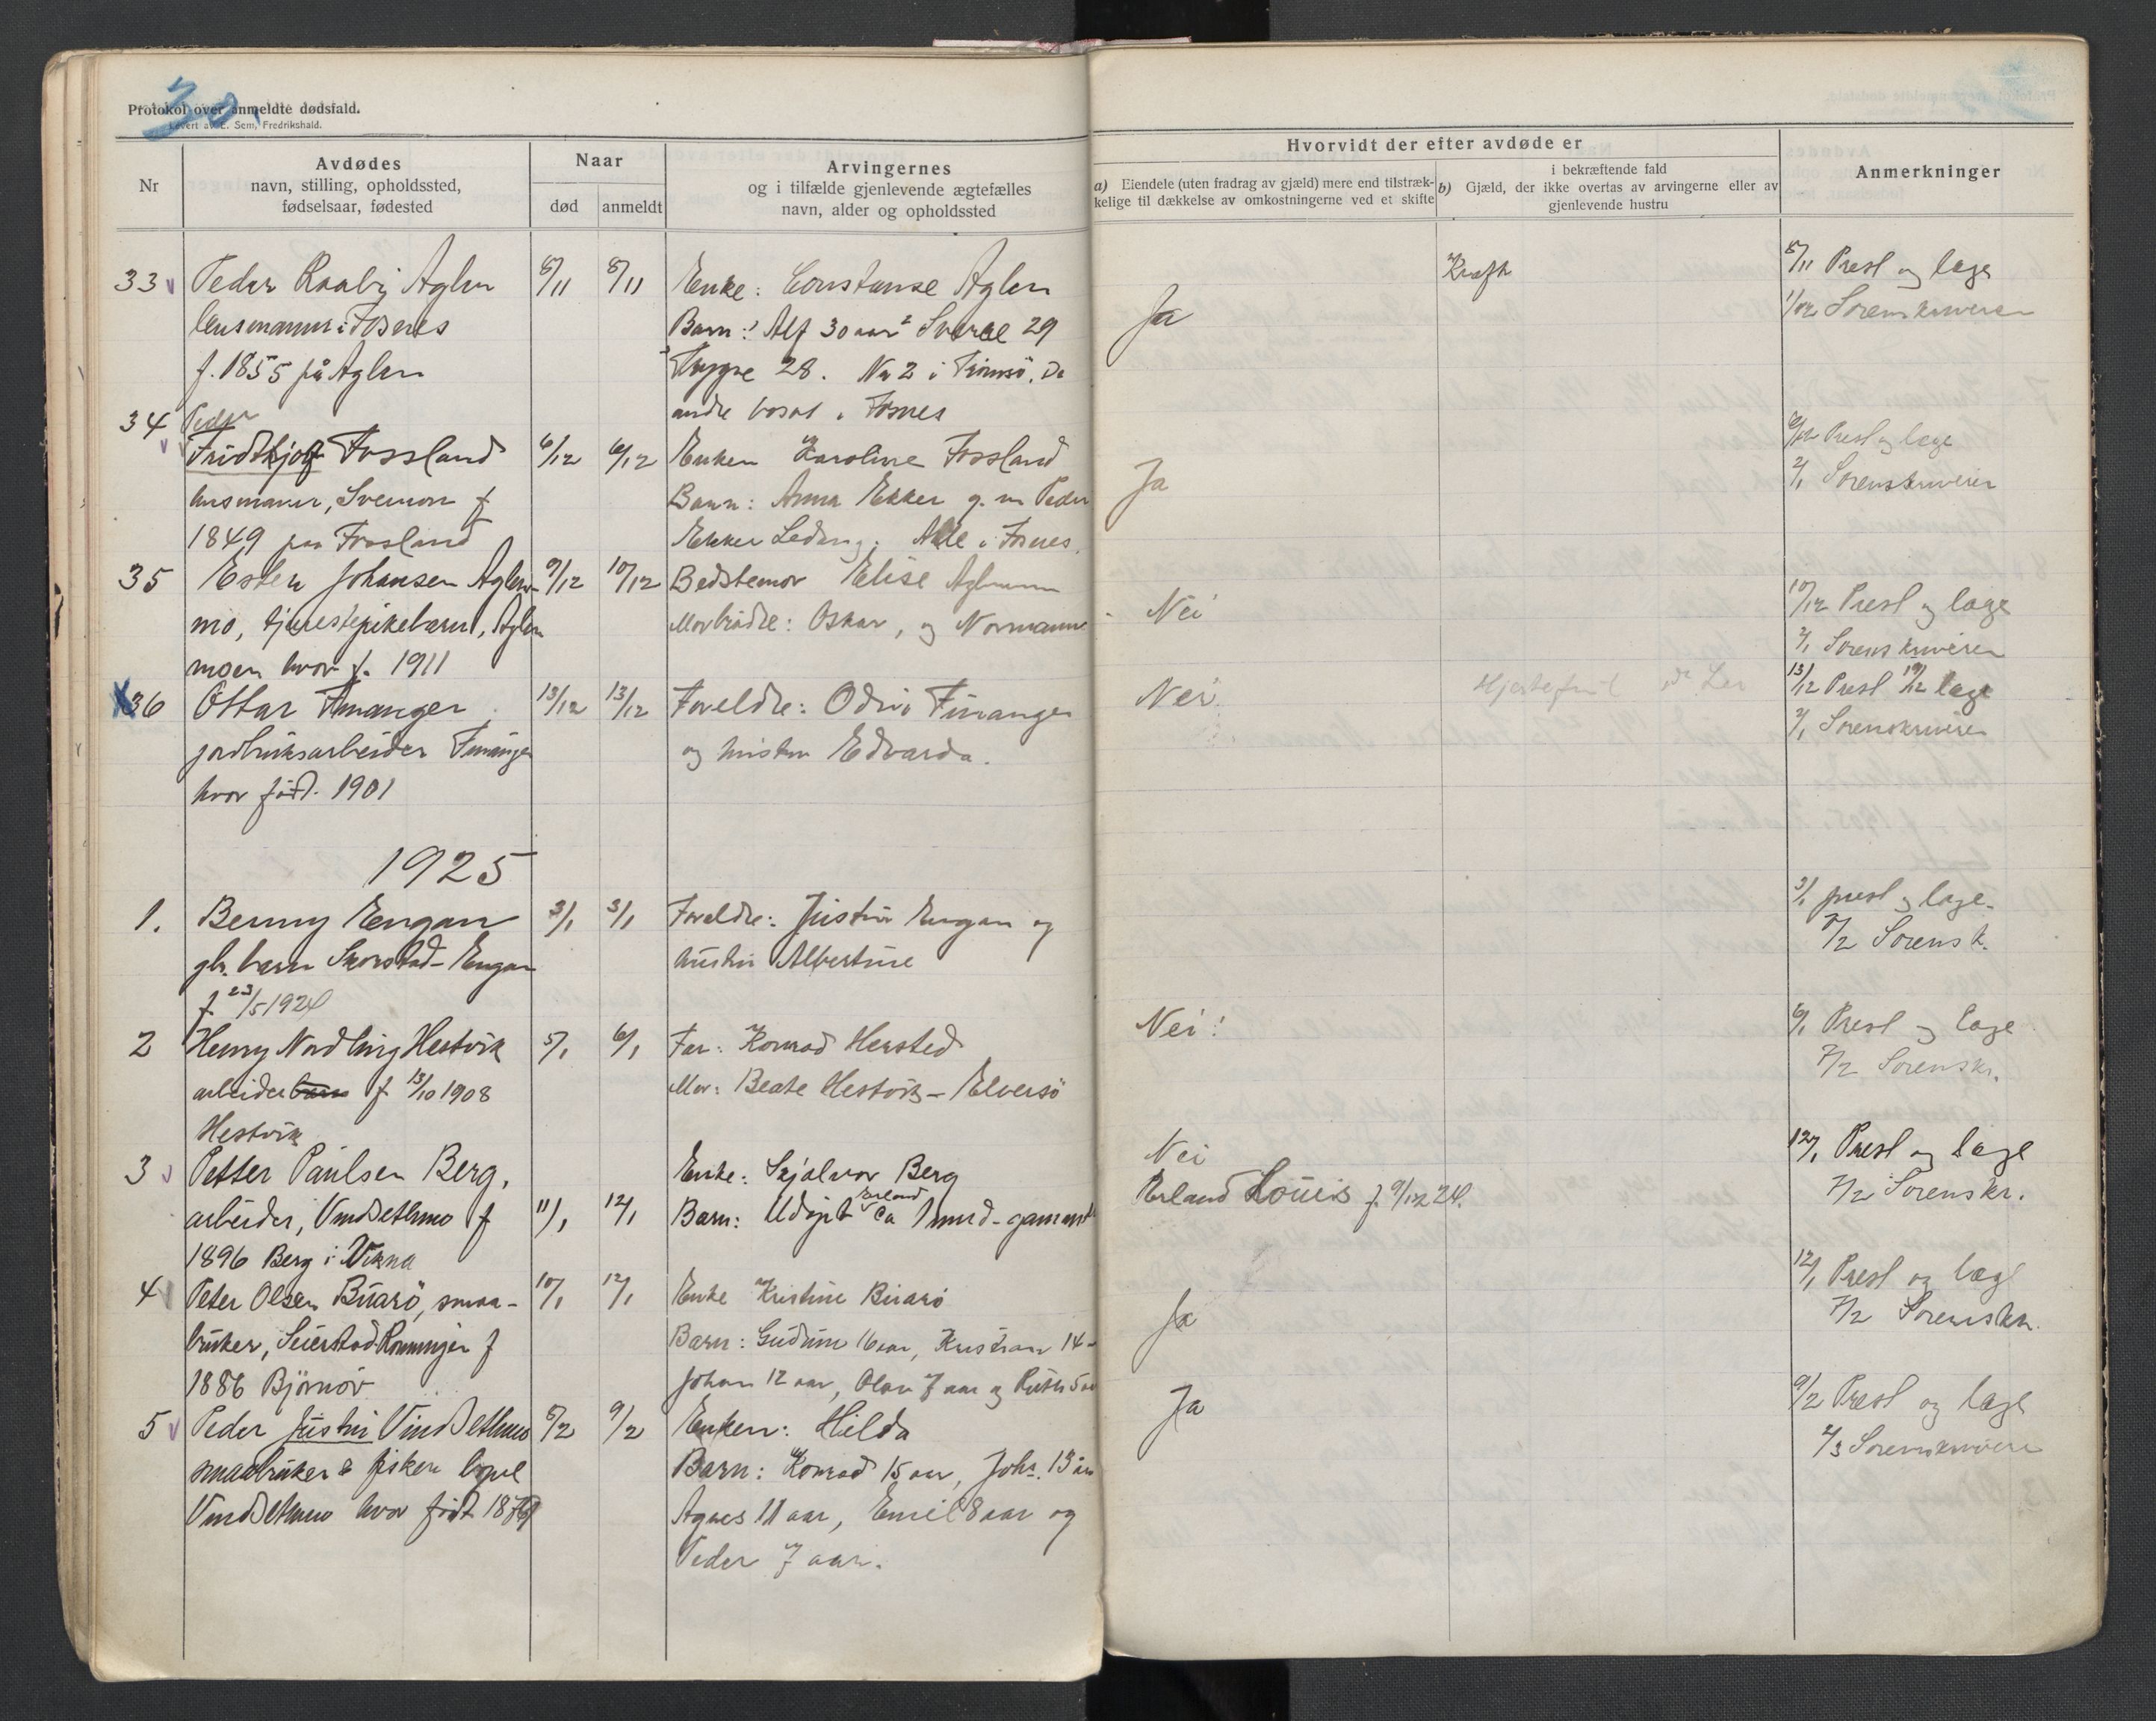 Protokol over anmeldte dødsfald.
Levert av E. Sem, Fredrikshald.
Nr
Avdødes
navn, stilling, opholdssted,
fødselsaar, fødested
Naar
død
anmeldt
Arvingernes
og i tilfælde gjenlevende ægtefælles
navn, alder og opholdssted
Hvorvidt der efter avdøde er
a) Eiendele (uten fradrag av gjæld) mere end tilstræk-
kelige til dækkelse av omkostningerne ved et skifte
i bekræftende fald
b) Gjæld, der ikke overtas av arvingerne eller av
gjenlevende hustru
Anmerkninger
33 Peder Raaby Aglen 8/11 8/11 Enke: Constanse Aglen Ja Kræft 8/11 Prest og læge
lensmann i Fosnes Barn: 1 Alf 30 aar 2 Sverre 29 1/12 Sorenskriveren
f. 1855 på Aglen 3 Trygve 28. No 2 i Tromsö. De
andre bosat i Fosnes
34 Peder
Fridthjof Fossland 6/12 6/12 Enken Karoline Fossland Ja 6/12 Prest og læge
f Barn: Anna Ekker g. m Peder 2/1 Sorenskriveren
1849 paa Fossland Ekker Alle i Fosnes.
35 Esten Johansen Aglen- 9/12 10/12 Bedstemor Elise Aglenmo Nei 10/12 Prest og læge
mo, tjenestepikebarn, Aglen Morbrødre: Oskar, og Normann 2/1 Sorenskriveren
moen hvor f. 1911
36 Ottar Finanger 13/12 13/12 Foreldre: Odin Finanger Nei Hjertefeil 13/12 Prest 19/12 læge
jordbruksarbeider Finanger og hustru Edvarda. 2/1 Sorenskriveren
hvor född. 1901
1925
1. Benny Engan 3/1 3/1 Foreldre: Justin Engan og 3/1 prest og læge.
barn Skorstad-Engan hustru Albertine 7/2 Sorensk.
f 23/5 1924
2 Henry Nordling Hestvik 5/1 6/1 Far: Konrad Hersted Nei! 6/1 Prest og læge
arbeider barn f 13/10 1908 Mor: Beate Hestvik - Elversö 7/2 Sorenskr.
Hestvik
3 Petter Paulsen Berg, Enke: Skjalvor Berg Nei 12/1 Prest og læge
arbeider, Vindsethmo f 11/1 12/1 Barn: Udöpt Erland ca 1 mnd. gammel Erland Louis f. 9/12 24. 7/2 Sorenskr.
1896 Berg i Vikna
4 Peter Olsen Buarö, smaa- 10/1 12/1 Enke Kristine Buarö Ja 12/1 Prest og læge
bruker, Seierstad Ronningen f Barn: Gudrun 16 aar, Kristian 14- 7/2 Sorenskr.
1886 Björnör Johan 12 aar, Olav 7 aar og Ruth 5 aar
5 Peder Justin Vindsethmo 8/2 9/2 Enken: Hilda Ja 9/2 Prest og læge
smaabruker & fisker Barn: Konrad 15 aar, Johs. 13 aar 2/3 Sorenskriveren
Vindsethmo hvor födt Agnes 11 aar, Emil 8 aar og
Peder 7 aar.